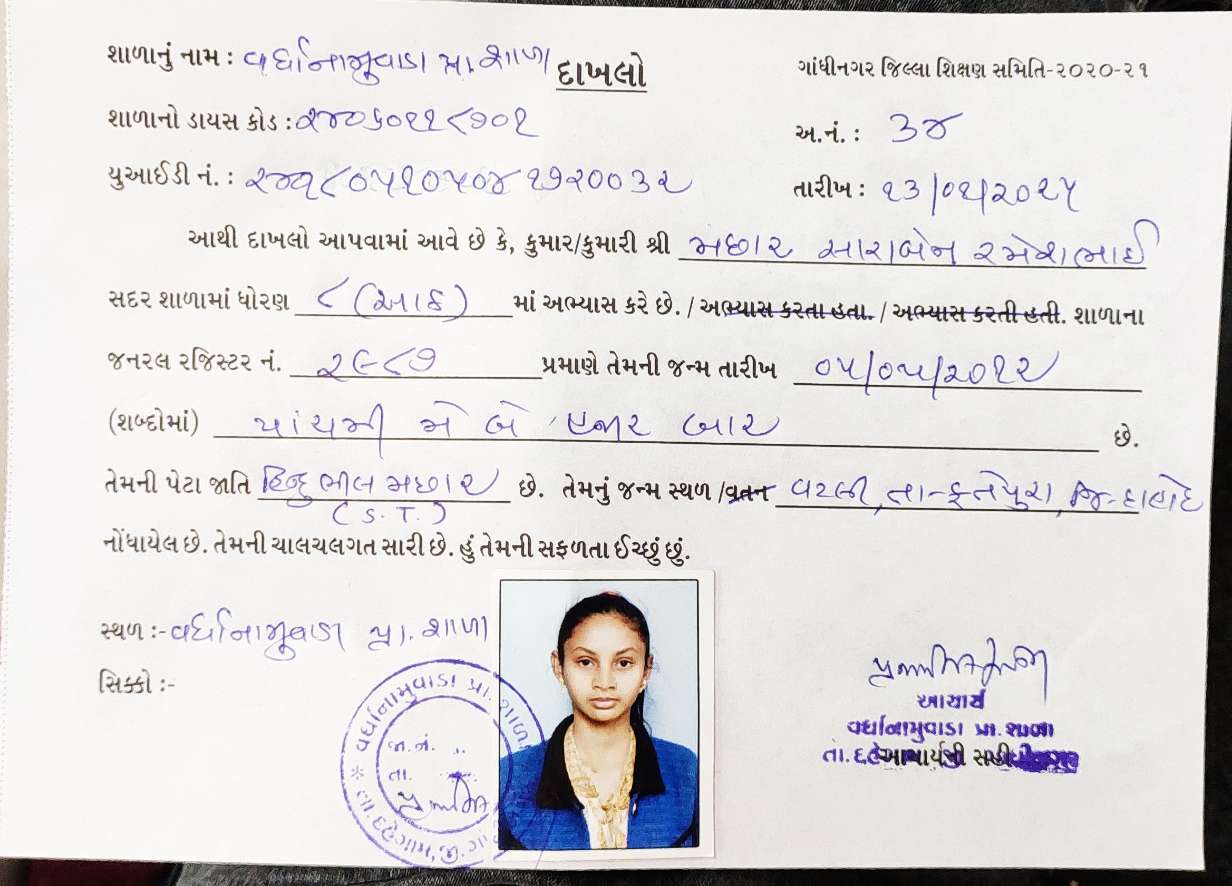 શાળાનું નામ : વર્ધાનામુવાડા પ્રા. શાળા
દાખલો
ગાંધીનગર જિલ્લા શિક્ષણ સમિતિ-૨૦૨૦-૨૧
શાળાનો ડાયસ કોડ : ૨૪૦૬૦૧૧૮૭૦૧
અ.નં. : ૩૪
યુઆઈડી નં. : ૨૪૧૮૦૫૧૦૫૦૪૧૭૨૦૦૩૨
તારીખ : ૧૩/૦૧/૨૦૨૫
આથી દાખલો આપવામાં આવે છે કે, કુમાર/કુમારી શ્રી મછાર સારાબેન રમેશભાઈ
સદર શાળામાં ધોરણ ૮ (આઠ) માં અભ્યાસ કરે છે. / અભ્યાસ કરતા હતા. / અભ્યાસ કરતી હતી. શાળાના
જનરલ રજિસ્ટર નં. ૨૯૮૭ પ્રમાણે તેમની જન્મ તારીખ ૦૫/૦૫/૨૦૧૨
(શબ્દોમાં) પાંચમી મે બે હજાર બાર છે.
તેમની પેટા જાતિ હિન્દુ ભીલ મછાર છે. તેમનું જન્મ સ્થળ /વતન વટલી, તા-ફતેપુરા, જિ-દાહોદ
(S.T.)
નોંધાયેલ છે. તેમની ચાલચલગત સારી છે. હું તેમની સફળતા ઈચ્છું છું.
સ્થળ :- વર્ધાનામુવાડા પ્રા. શાળા
સિક્કો :-
વર્ધાનામુવાડા પ્રા. શાળા
જા.નં.
તા.
આચાર્ય
વર્ધાનામુવાડા પ્રા. શાળા
આચાર્યની સહી